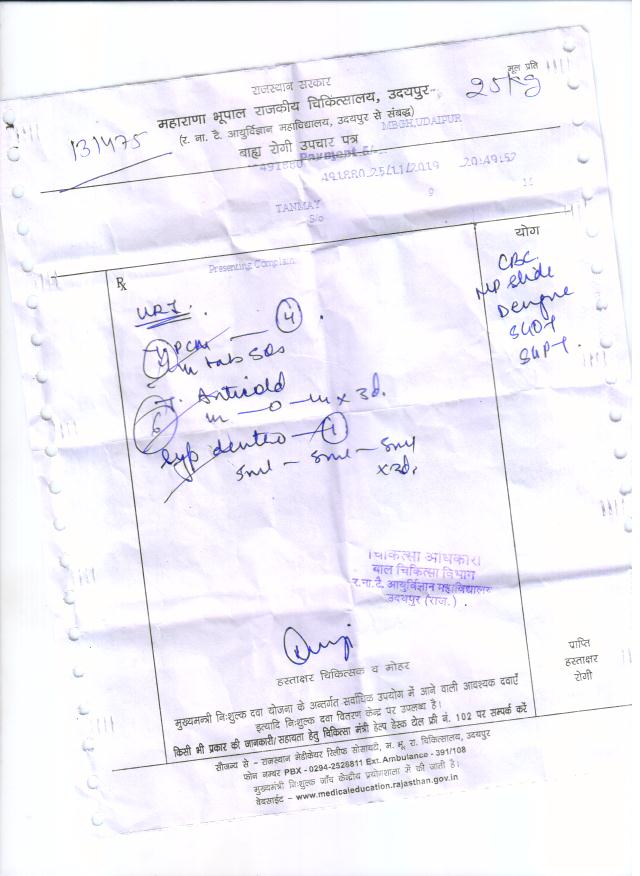 राजस्थान सरकार
मूल प्रति
महाराणा भूपाल राजकीय चिकित्सालय, उदयपुर
25Kg
131475
(र. ना. टै. आयुर्विज्ञान महाविद्यालय, उदयपुर से संबद्ध)
MBGH,UDAIPUR
बाह्य रोगी उपचार पत्र
491880
491880 25/11/2019 20:49:52
TANMAY
9
S/o
योग
Rx
Presenting Complain
URI.
CBC
MP slide
Dengue
SGOT
SGPT.
PCM — 4
tab SOS
6 T. Anticold
x 3d.
Syp — 1
5ml - 5ml - 5ml
x 3d.
चिकित्सा अधिकारी
बाल चिकित्सा विभाग
र.ना.टै. आयुर्विज्ञान महाविद्यालय
उदयपुर (राज.)
हस्ताक्षर चिकित्सक व मोहर
प्राप्ति
हस्ताक्षर
रोगी
मुख्यमन्त्री निःशुल्क दवा योजना के अन्तर्गत सर्वाधिक उपयोग में आने वाली आवश्यक दवाएँ
इत्यादि निःशुल्क दवा वितरण केन्द्र पर उपलब्ध है।
किसी भी प्रकार की जानकारी/सहायता हेतु चिकित्सा मंत्री हेल्प डेस्क टोल फ्री नं. 102 पर सम्पर्क करें
सौजन्य से - राजस्थान मेडीकेयर रिलीफ सोसायटी, म. भू. रा. चिकित्सालय, उदयपुर
फोन नम्बर PBX - 0294-2528811 Ext. Ambulance - 391/108
मुख्यमंत्री निःशुल्क जाँच केन्द्रीय प्रयोगशाला में की जाती है।
वेबसाईट - www.medicaleducation.rajasthan.gov.in